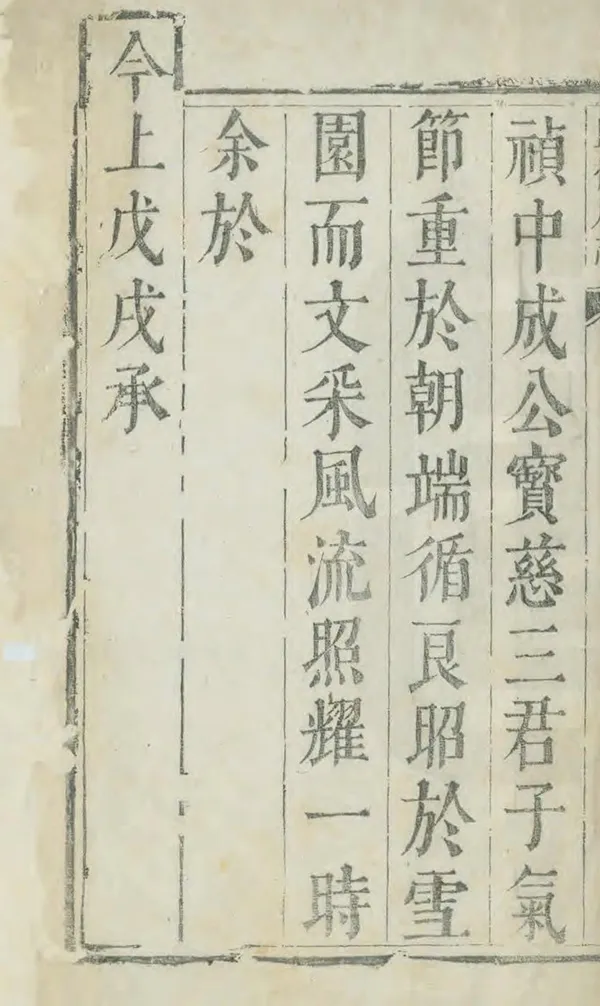 禎中成公寶慈三君子氣
節重於朝端循良昭於雪
園而文采風流照耀一時
余於
今上戊戌承